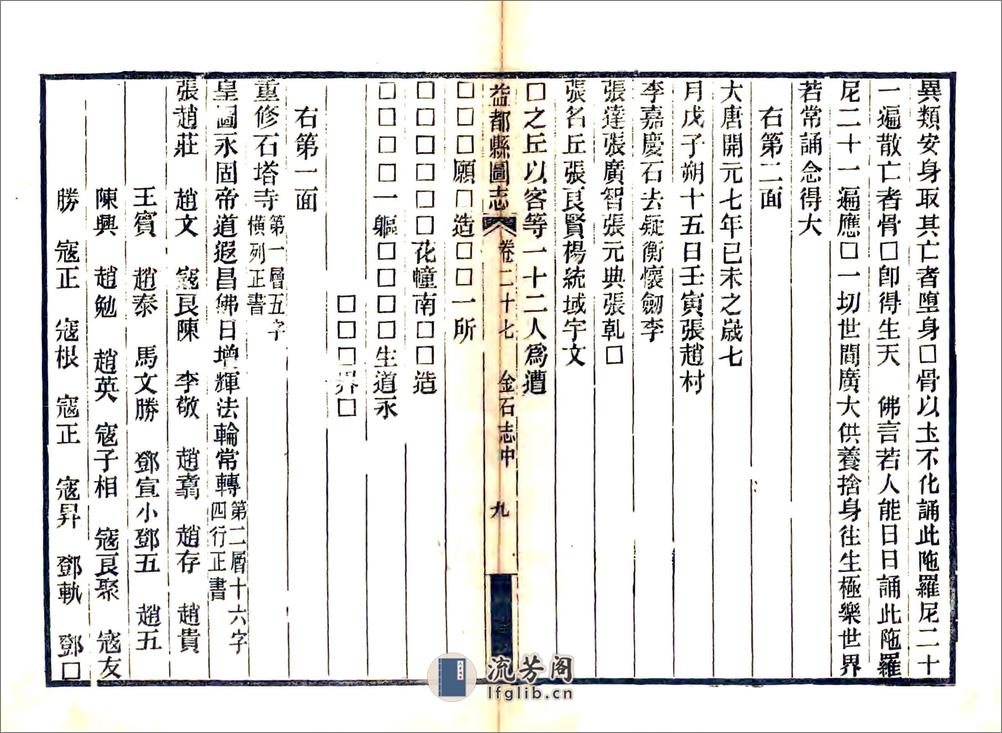 異類安身取其亡者墮身□骨以圡不化誦此陁羅尼二十
一遍散亡者骨□卽得生天　佛言若人能日日誦此陁羅
尼二十一遍應□一切世間廣大供養捨身往生極樂世界
若常誦念得大
右第二面
大唐開元七年已未之歲七
月戊子朔十五日壬寅張趙村
李嘉慶石去疑衡懷劒李
張達張廣智張元典張乹□
張名丘張良賢楊統域宇文
□之丘以客等一十二人爲遭
益都縣圖志　卷二十七　金石志中　九
□□□願□造□□□一所
□□□□□□花幢南□□□造
□□□□□一軀□□□□生道永
□□□□界□
右第一面
重修石塔寺第一層五字橫列正書
皇圖永固帝道遐昌佛日增輝法輪常轉第二層十六字四行正書
張趙莊　趙文　寇良陳　李敬　趙　趙存　趙貴
王賓　趙泰　馬文勝　鄧宣小鄧五　趙五
陳興　趙勉　趙英　寇子相　寇良聚　寇友
勝　寇正　寇根　寇正　寇昇　鄧軌　鄧□
流芳阁
lfglib.cn